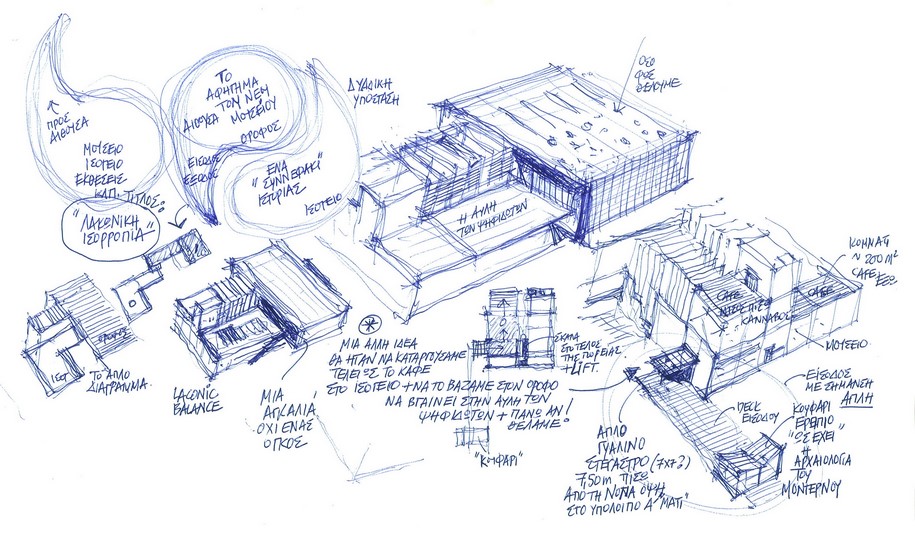 ΠΡΟΣ
ΑΙΘΟΥΣΑ
ΜΟΥΣΕΙΟ
ΙΣΟΓΕΙΟ
ΕΚΘΕΣΕΙΣ
ΚΛΠ. ΤΙΤΛΟΣ:
"ΛΑΚΩΝΙΚΗ
ΙΣΟΡΡΟΠΙΑ"
ΤΟ
ΑΦΗΓΗΜΑ
ΤΟΥ ΝΕΟΥ
ΑΙΘΟΥΣΑ ΜΟΥΣΕΙΟΥ
ΟΡΟΦΟΣ
ΕΙΣΟΔΟΣ
ΕΞΟΔΟΣ
ΕΝΑ
"ΣΥΝΝΕΦΑΚΙ"
ΙΣΤΟΡΙΑΣ
ΙΣΟΓΕΙΟ
ΔΥΑΔΙΚΗ
ΥΠΟΣΤΑΣΗ
ΟΣΟ
ΦΩΣ
ΘΕΛΟΥΜΕ
Η ΑΥΛΗ
ΤΩΝ ΨΗΦΙΔΩΤΩΝ
ΟΡΟΦΟΣ
ΙΣΟΓ
ΤΟ ΑΠΛΟ
ΔΙΑΓΡΑΜΜΑ.
LACONIC
BALANCE
ΜΙΑ
ΑΓΚΑΛΙΑ
ΟΧΙ ΕΝΑΣ
ΟΓΚΟΣ
ΜΙΑ ΑΛΛΗ ΙΔΕΑ
ΘΑ ΗΤΑΝ ΝΑ ΚΑΤΑΡΓΟΥΣΑΜΕ
ΤΕΛΕΙΩΣ ΤΟ ΚΑΦΕ
ΣΤΟ ΙΣΟΓΕΙΟ + ΝΑ ΤΟ ΒΑΖΑΜΕ ΣΤΟΝ ΟΡΟΦΟ
ΝΑ ΒΓΑΙΝΕΙ ΣΤΗΝ ΑΥΛΗ ΤΩΝ
ΨΗΦΙΔΩΤΩΝ + ΠΑΝΩ ΑΝ
ΘΕΛΑΜΕ!
ΣΚΑΛΑ
ΣΤΟ ΤΕΛΟΣ
ΤΗΣ ΠΟΡΕΙΑΣ
+ LIFT.
"ΚΟΥΦΑΡΙ"
ΑΠΛΟ
ΓΥΑΛΙΝΟ
ΣΤΕΓΑΣΤΡΟ (7x7?)
7,50m ΠΙΣΩ
ΑΠΟ ΤΗ ΝΟΤΙΑ ΟΨΗ
ΣΤΟ ΥΠΟΛΟΙΠΟ Α' "ΜΑΤΙ"
ΚΟΜΜΑΤΙ
~ 200 m²
CAFE
ΕΞΩ
CAFE
CAFE
ΚΑΝΝΑΒΟΣ
ΜΟΥΣΕΙΟ
ΕΙΣΟΔΟΣ
ΜΕ ΣΗΜΑΝΣΗ
ΑΠΛΗ
DECK
ΕΙΣΟΔΟΥ
ΚΟΥΦΑΡΙ
ΕΡΕΙΠΙΟ
"ΩΣ ΕΧΕΙ"
Η
ΑΡΧΑΙΟΛΟΓΙΑ
ΤΟΥ
ΜΟΝΤΕΡΝΟΥ